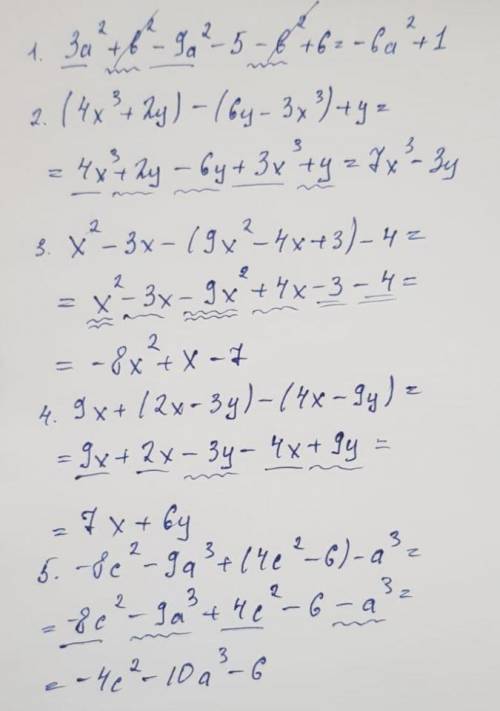 1. 3a² + b² - 9a² - 5 - b² + 6 = -6a² + 1
2. (4x³ + 2y) - (6y - 3x³) + y =
= 4x³ + 2y - 6y + 3x³ + y = 7x³ - 3y
3. x² - 3x - (9x² - 4x + 3) - 4 =
= x² - 3x - 9x² + 4x - 3 - 4 =
= -8x² + x - 7
4. 9x + (2x - 3y) - (4x - 9y) =
= 9x + 2x - 3y - 4x + 9y =
= 7x + 6y
5. -8c² - 9a³ + (4c² - 6) - a³ =
= -8c² - 9a³ + 4c² - 6 - a³ =
= -4c² - 10a³ - 6